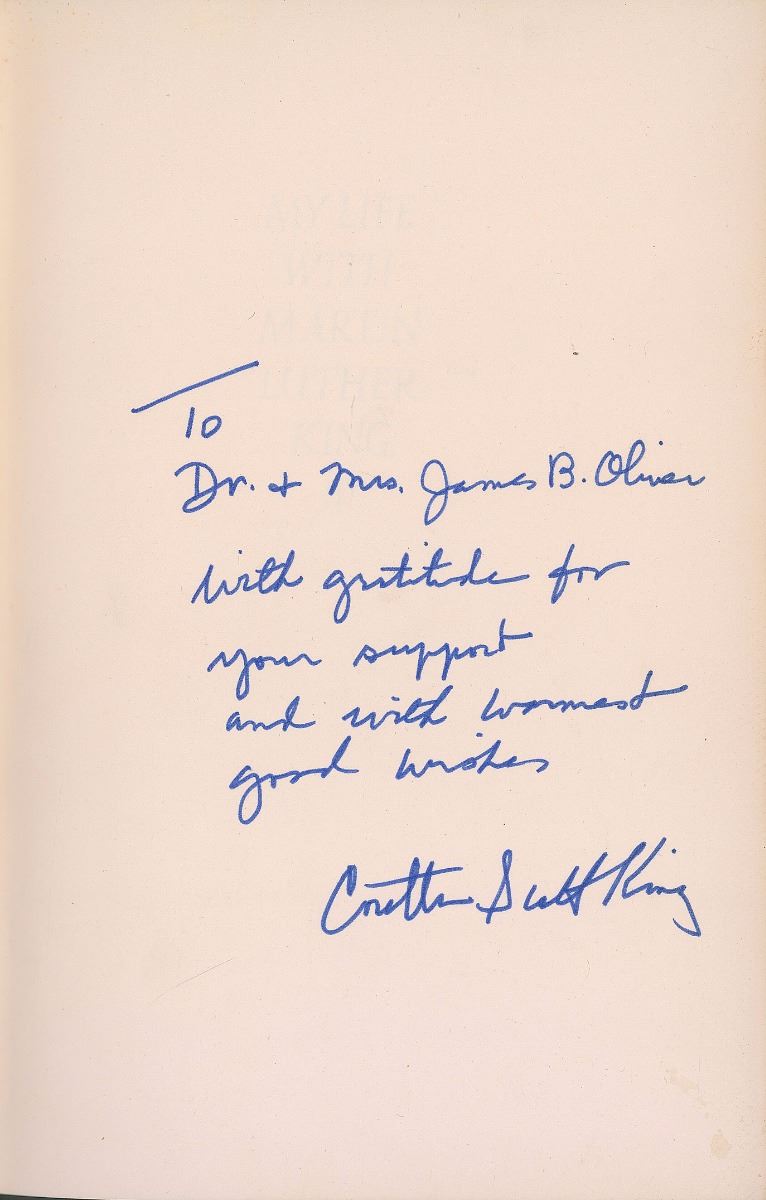 MY LIFE
WITH
MARTIN
LUTHER
KING
To
Dr. + Mrs. James B. Oliver
With gratitude for
your support
and with warmest
good wishes
Coretta Scott King